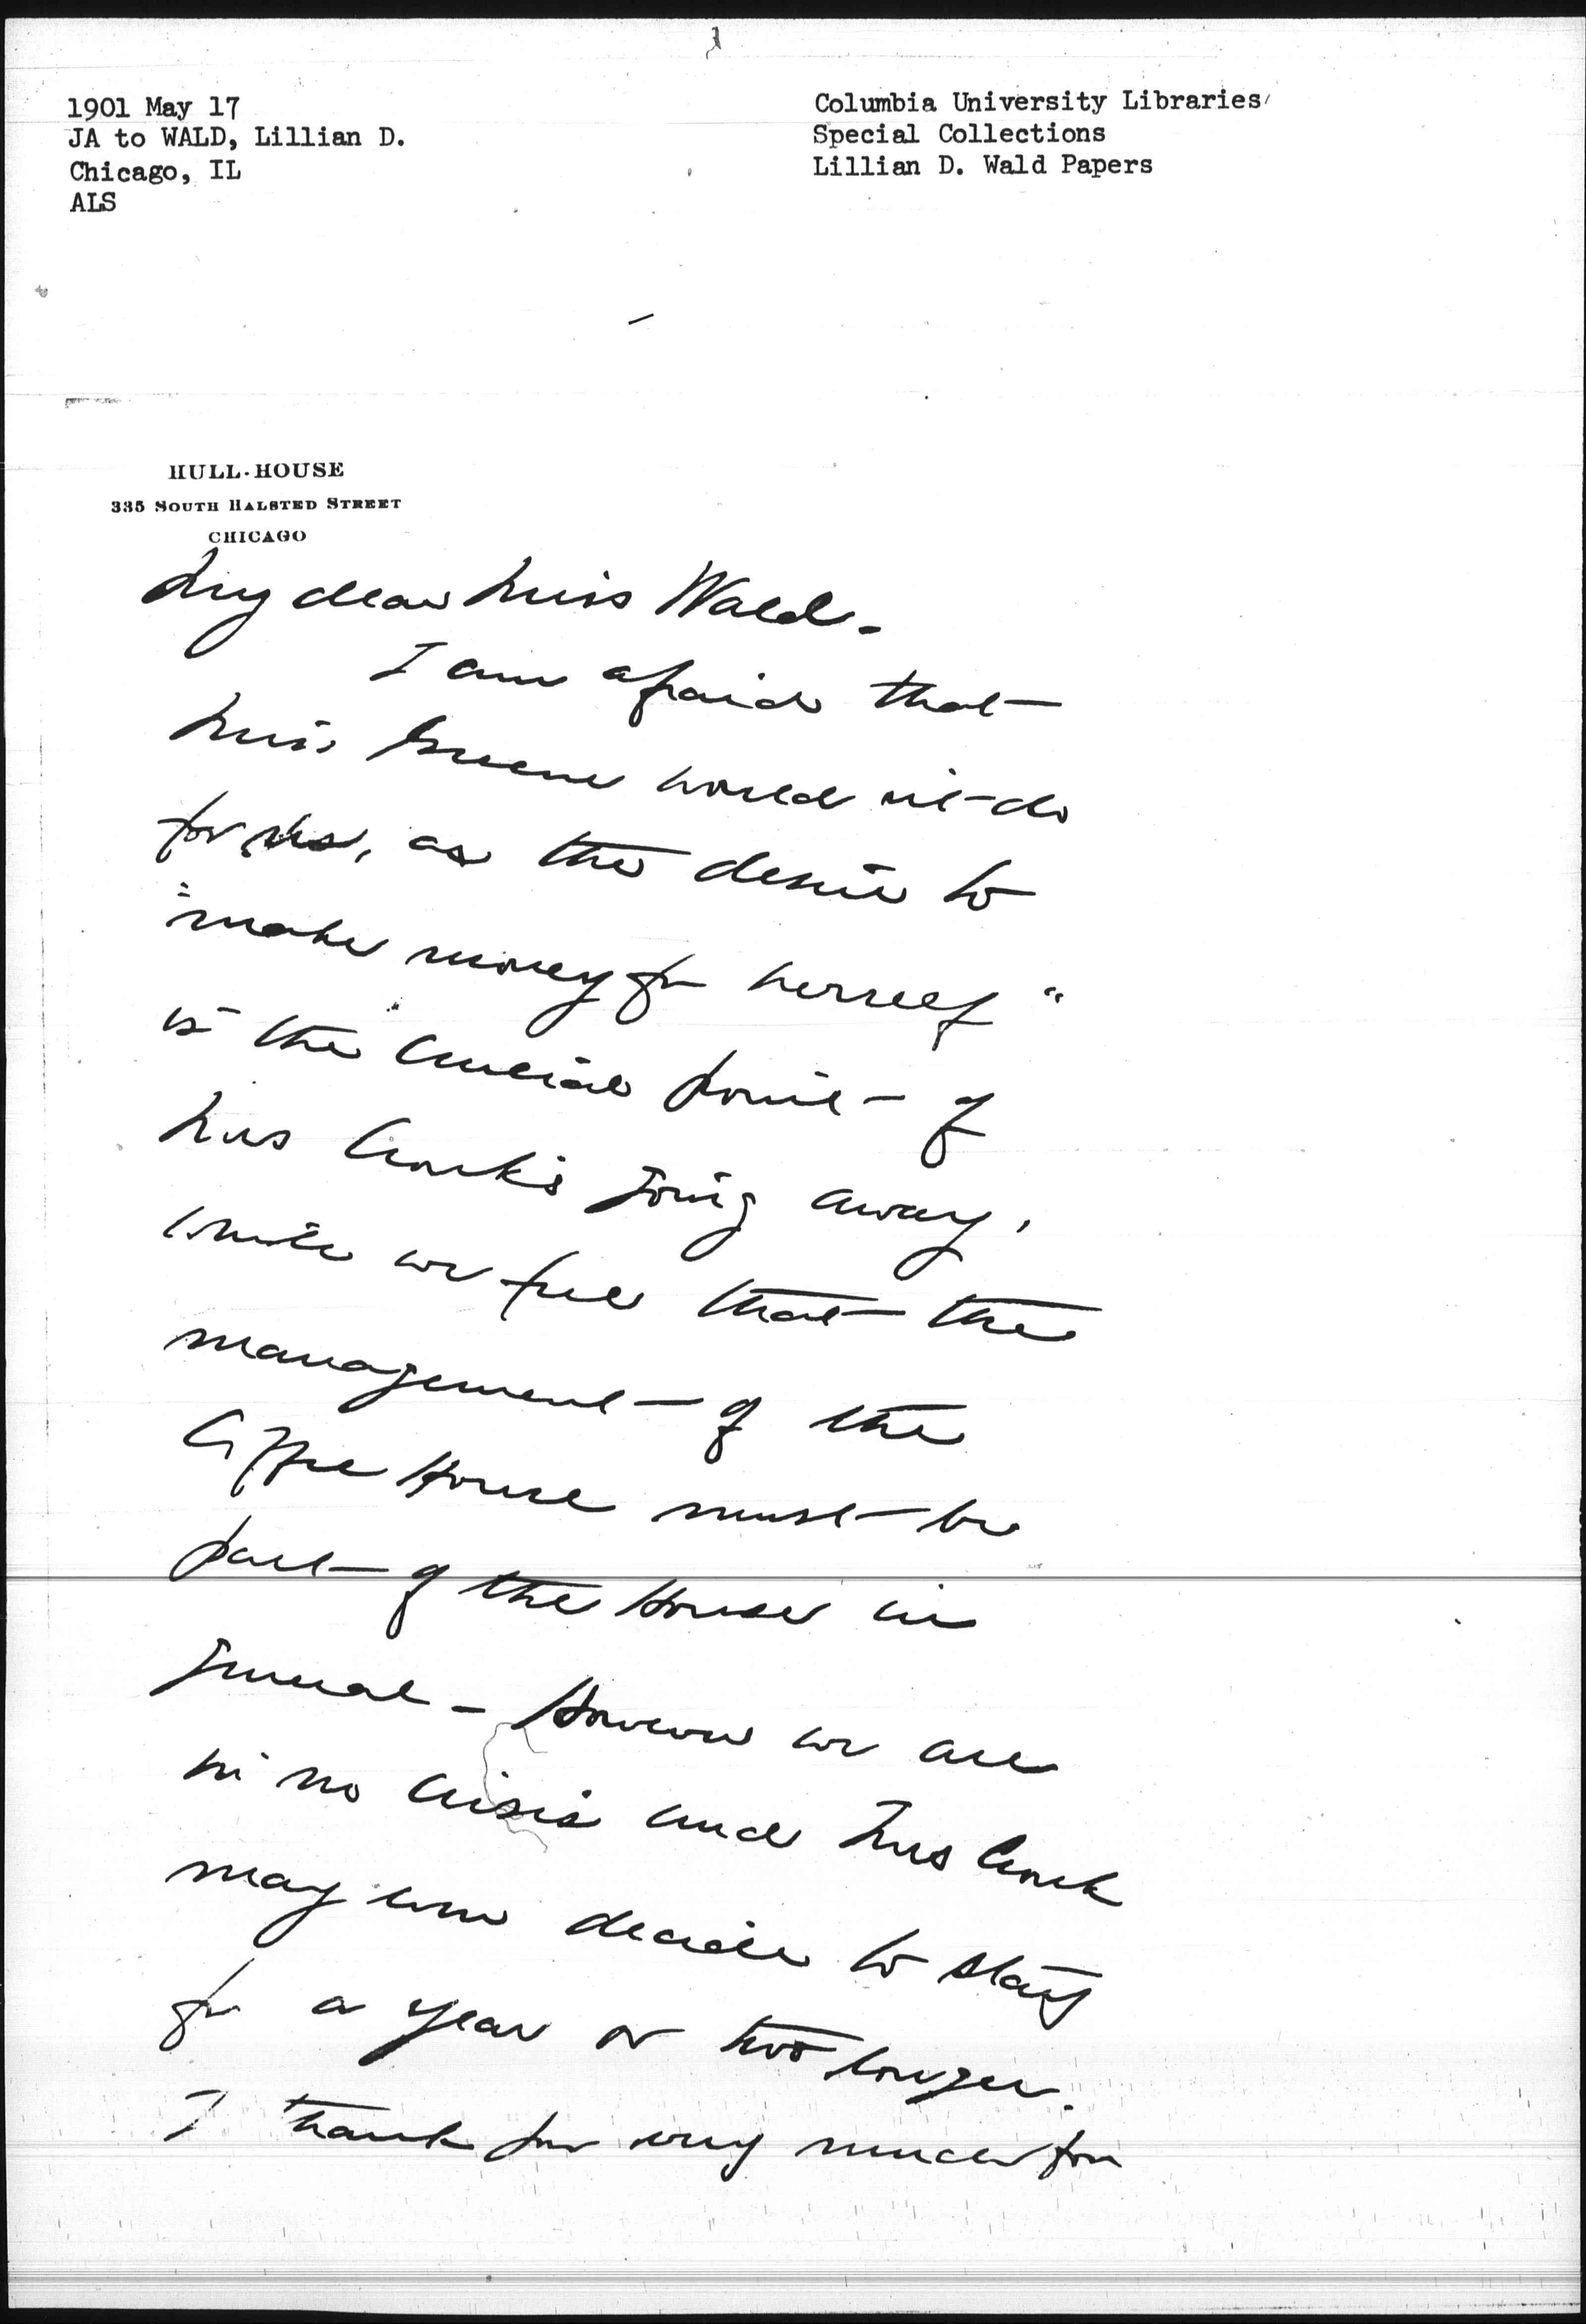 1901 May 17
JA to WALD, Lillian D.
Chicago, IL
ALS
Columbia University Libraries
Special Collections
Lillian D. Wald Papers
HULL-HOUSE
335 SOUTH HALSTED STREET
CHICAGO
My dear Miss Wald -
I am afraid that
Miss Greene would not do
for us, as the desire to
"make money for herself"
is the crucial point of
Miss Crouk's going away,
while we feel that the
management of the
Coffee House must be
part of the House in
general - However we are
in no crisis and Miss Crouk
may even decide to stay
for a year or two longer.
I thank you very much for